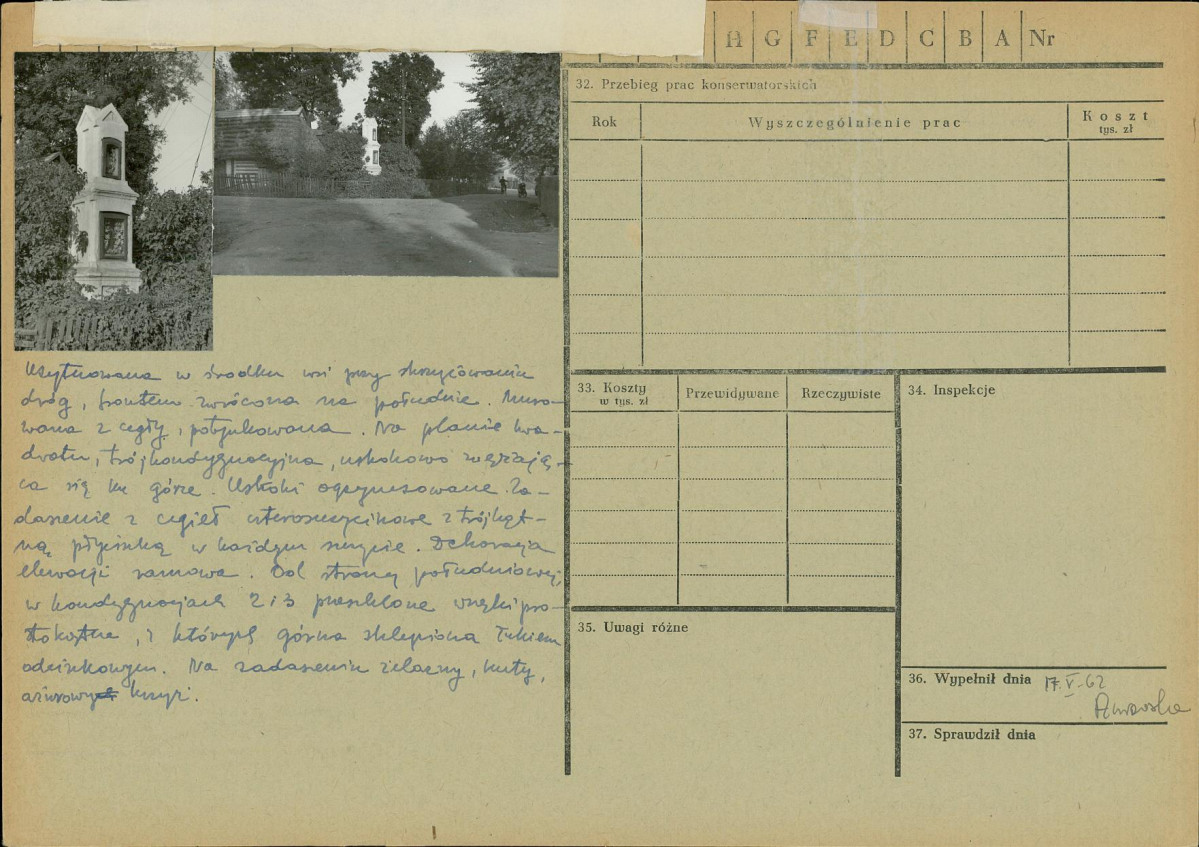 H G F E D C B A Nr
32. Przebieg prac konserwatorskich
Rok
Wyszczególnienie prac
Koszt
tys. zł
Usytuowana w środku wsi przy skrzyżowaniu
dróg, frontem zwrócona na południe. Muro-
wana z cegły, potynkowana. Na planie kwa-
dratu, trójkondygnacyjna, uskokowo zwężają-
ca się ku górze. Uskoki ogzymsowane. Za-
daszenie z cegieł czteroszczytowe z trójkąt-
ną płycinką w każdym szczycie. Dekoracja
elewacji ramowa. Od strony południowej,
w kondygnacjach 2 i 3 przeszklone wnęki pro-
stokątne, z których górna sklepiona łukiem
odcinkowym. Na zadaszeniu żelazny, kuty,
ażurowy krzyż.
33. Koszty
w tys. zł
Przewidywane
Rzeczywiste
34. Inspekcje
35. Uwagi różne
36. Wypełnił dnia 17.V.62
37. Sprawdził dnia